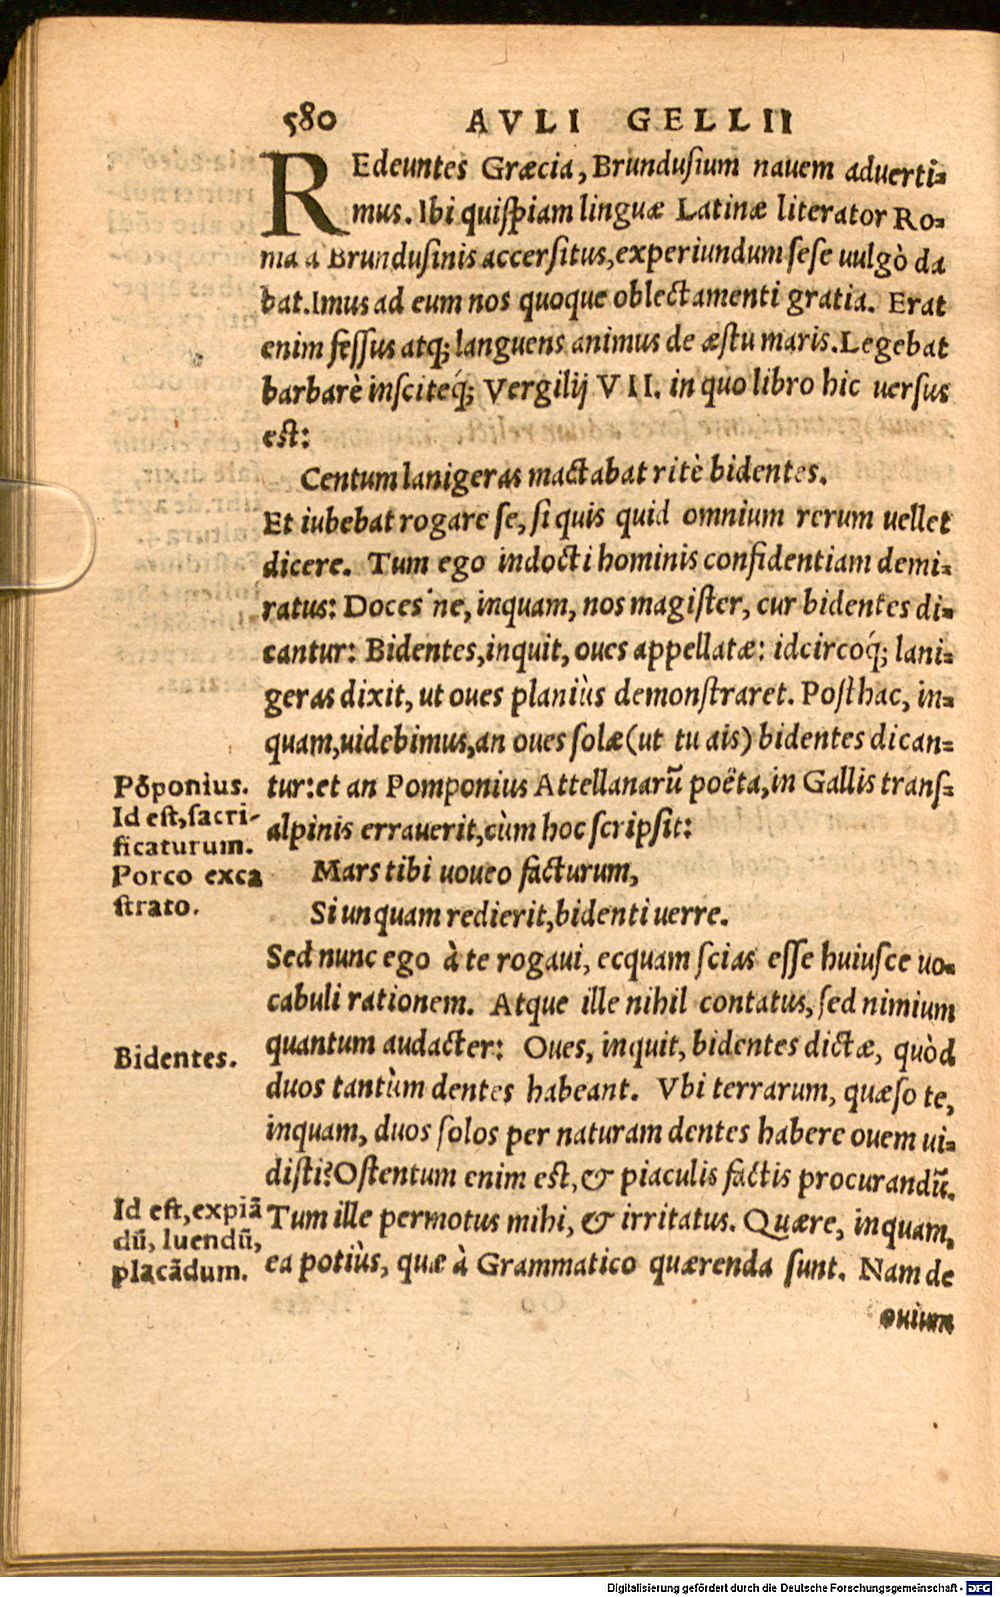 580 AVLI GELLII
REdeuntes Græcia, Brundusium nauem aduerti-
mus. Ibi quispiam linguæ Latinæ literator Ro-
ma à Brundusinis accersitus, experiundum sese uulgò da
bat. Imus ad eum nos quoque oblectamenti gratia. Erat
enim fessus atq; languens animus de æstu maris. Legebat
barbarè insciteq́; Vergilij VII. in quo libro hic uersus
est:
Centum lanigeras mactabat ritè bidentes.
Et iubebat rogare se, si quis quid omnium rerum uellet
dicere. Tum ego indocti hominis confidentiam demi-
ratus: Doces'ne, inquam, nos magister, cur bidentes di-
cantur: Bidentes, inquit, oues appellatæ: idcircoq́; lani-
geras dixit, ut oues planiùs demonstraret. Posthac, in-
quam, uidebimus, an oues solæ (ut tu ais) bidentes dican-
tur: et an Pomponius Attellanarũ poëta, in Gallis trans-
alpinis errauerit, cùm hoc scripsit:
Mars tibi uoueo facturum,
Si unquam redierit, bidenti uerre.
Sed nunc ego à te rogaui, ecquam scias esse huiusce uo-
cabuli rationem. Atque ille nihil contatus, sed nimium
quantum audacter: Oues, inquit, bidentes dictæ, quòd
duos tantùm dentes habeant. Vbi terrarum, quæso te,
inquam, duos solos per naturam dentes habere ouem ui-
disti? Ostentum enim est, & piaculis factis procurandũ.
Tum ille permotus mihi, & irritatus. Quære, inquam,
ea potiùs, quæ à Grammatico quærenda sunt. Nam de
ouium
Põponius.
Id est, sacri-
ficaturum.
Porco exca
strato.
Bidentes.
Id est, expiã
dũ, luendũ,
placãdum.
Digitalisierung gefördert durch die Deutsche Forschungsgemeinschaft - DFG